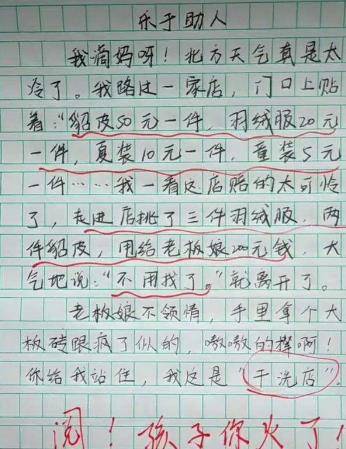 乐于助人
我滴妈呀！北方天气真是太
冷了。我路过一家店，门口上贴
着："貂皮50元一件，羽绒服20元
一件，夏装10元一件，童装5元
一件……我一看这店赔的太可怜
了，走进店挑了三件羽绒服，两
件貂皮，甩给老板娘200元钱，大
气地说："不用找了。"就离开了。
老板娘不领情，手里拿个大
板砖跟疯了似的，嗷嗷的撵啊！
你给我站住，我这是"干洗店"
阅！孩子你火了！